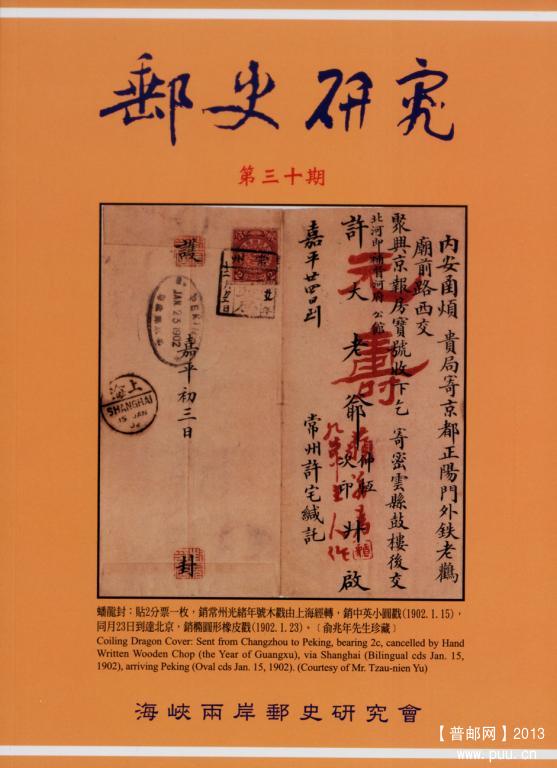 郵史研究
第三十期
內安函煩 貴局寄京都正陽門外鉄老鸛
廟前路西交
聚興京報房寶號收下乞 寄密雲縣鼓樓後交
許大老爺
升啟
嘉平廿四日到
常州許宅緘託
護
嘉平初三日
封
PEKING
JAN 23 1902
上海
SHANGHAI
15 JAN
02
蟠龍封：貼2分票一枚，銷常州光緒年號木戳由上海經轉，銷中英小圓戳(1902.1.15)，
同月23日到達北京，銷橢圓形橡皮戳(1902.1.23)。〔俞兆年先生珍藏〕
Coiling Dragon Cover: Sent from Changzhou to Peking, bearing 2c, cancelled by Hand
Written Wooden Chop (the Year of Guangxu), via Shanghai (Bilingual cds Jan. 15,
1902), arriving Peking (Oval cds Jan. 15, 1902). (Courtesy of Mr. Tzau-nien Yu)
海峽兩岸郵史研究會
【普邮网】2013
www.puu.cn